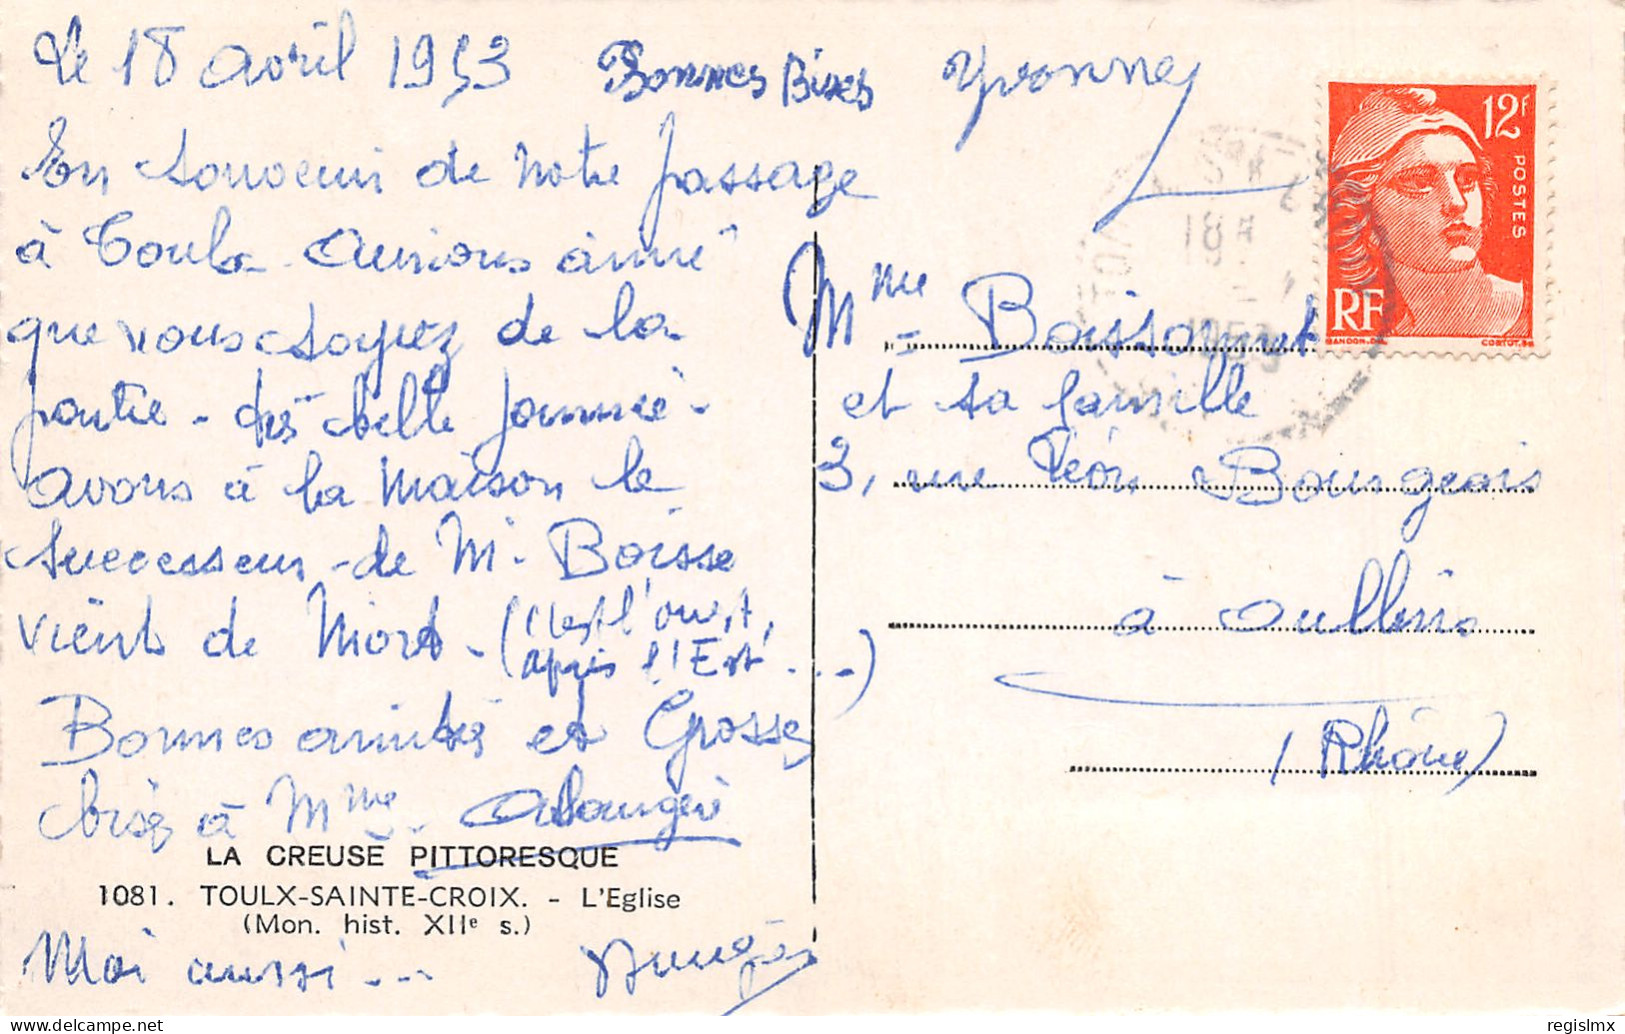 Le 18 avril 1953 Bonnes Bises Yvonne
En souvenir de notre passage
à Toulx - Aurions aimé
que vous soyiez de la
partie - très belle journée -
avons à la maison le
successeur de M. Boisse
vient de Niort - (c'est l'ouest,
après l'Est ....)
Bonnes amitiés et Grosses
bises à Mme
LA CREUSE PITTORESQUE
1081. TOULX-SAINTE-CROIX. - L'Eglise
(Mon. hist. XIIe s.)
Moi aussi ...
12F
POSTES
RF
GANDON.DEL
CORTOT.SC
18
1953
Mme Boissonnet
et sa famille
3, rue Léon Bourgeois
à Oullins
(Rhône)
www.delcampe.net
regislmx